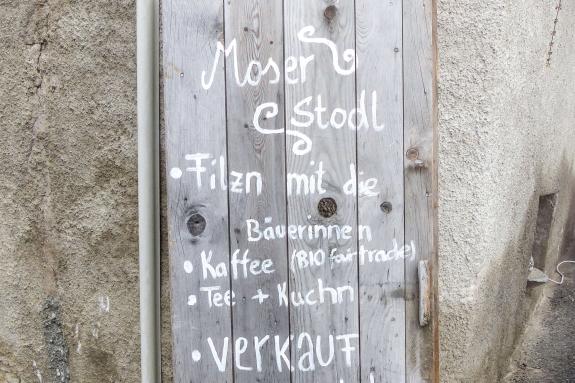 Moser
Stodl
• Filzn mit die
Bäuerinnen
• Kaffee (BIO fairtrade)
• Tee + Kuchn
• VERKAUF